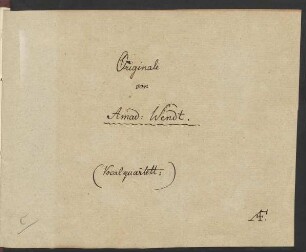 Originale
von
Amad: Wendt.
(Vocalquartett)